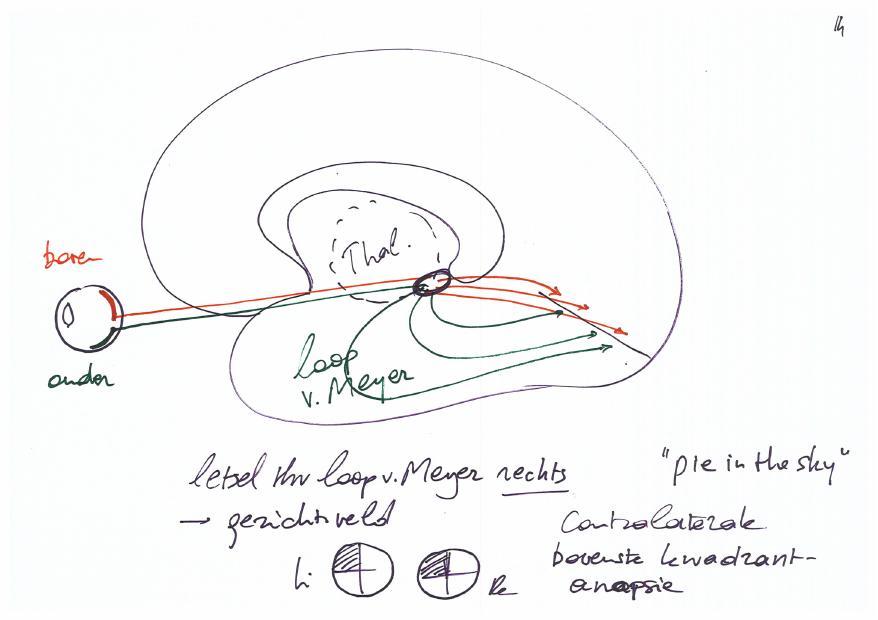 14
boven
Thal.
onder
loop
v. Meyer
letsel thv loop v. Meyer rechts
→ gezichtsveld
"pie in the sky"
Contralaterale
bovenste kwadrant-
anopsie
Li
Re